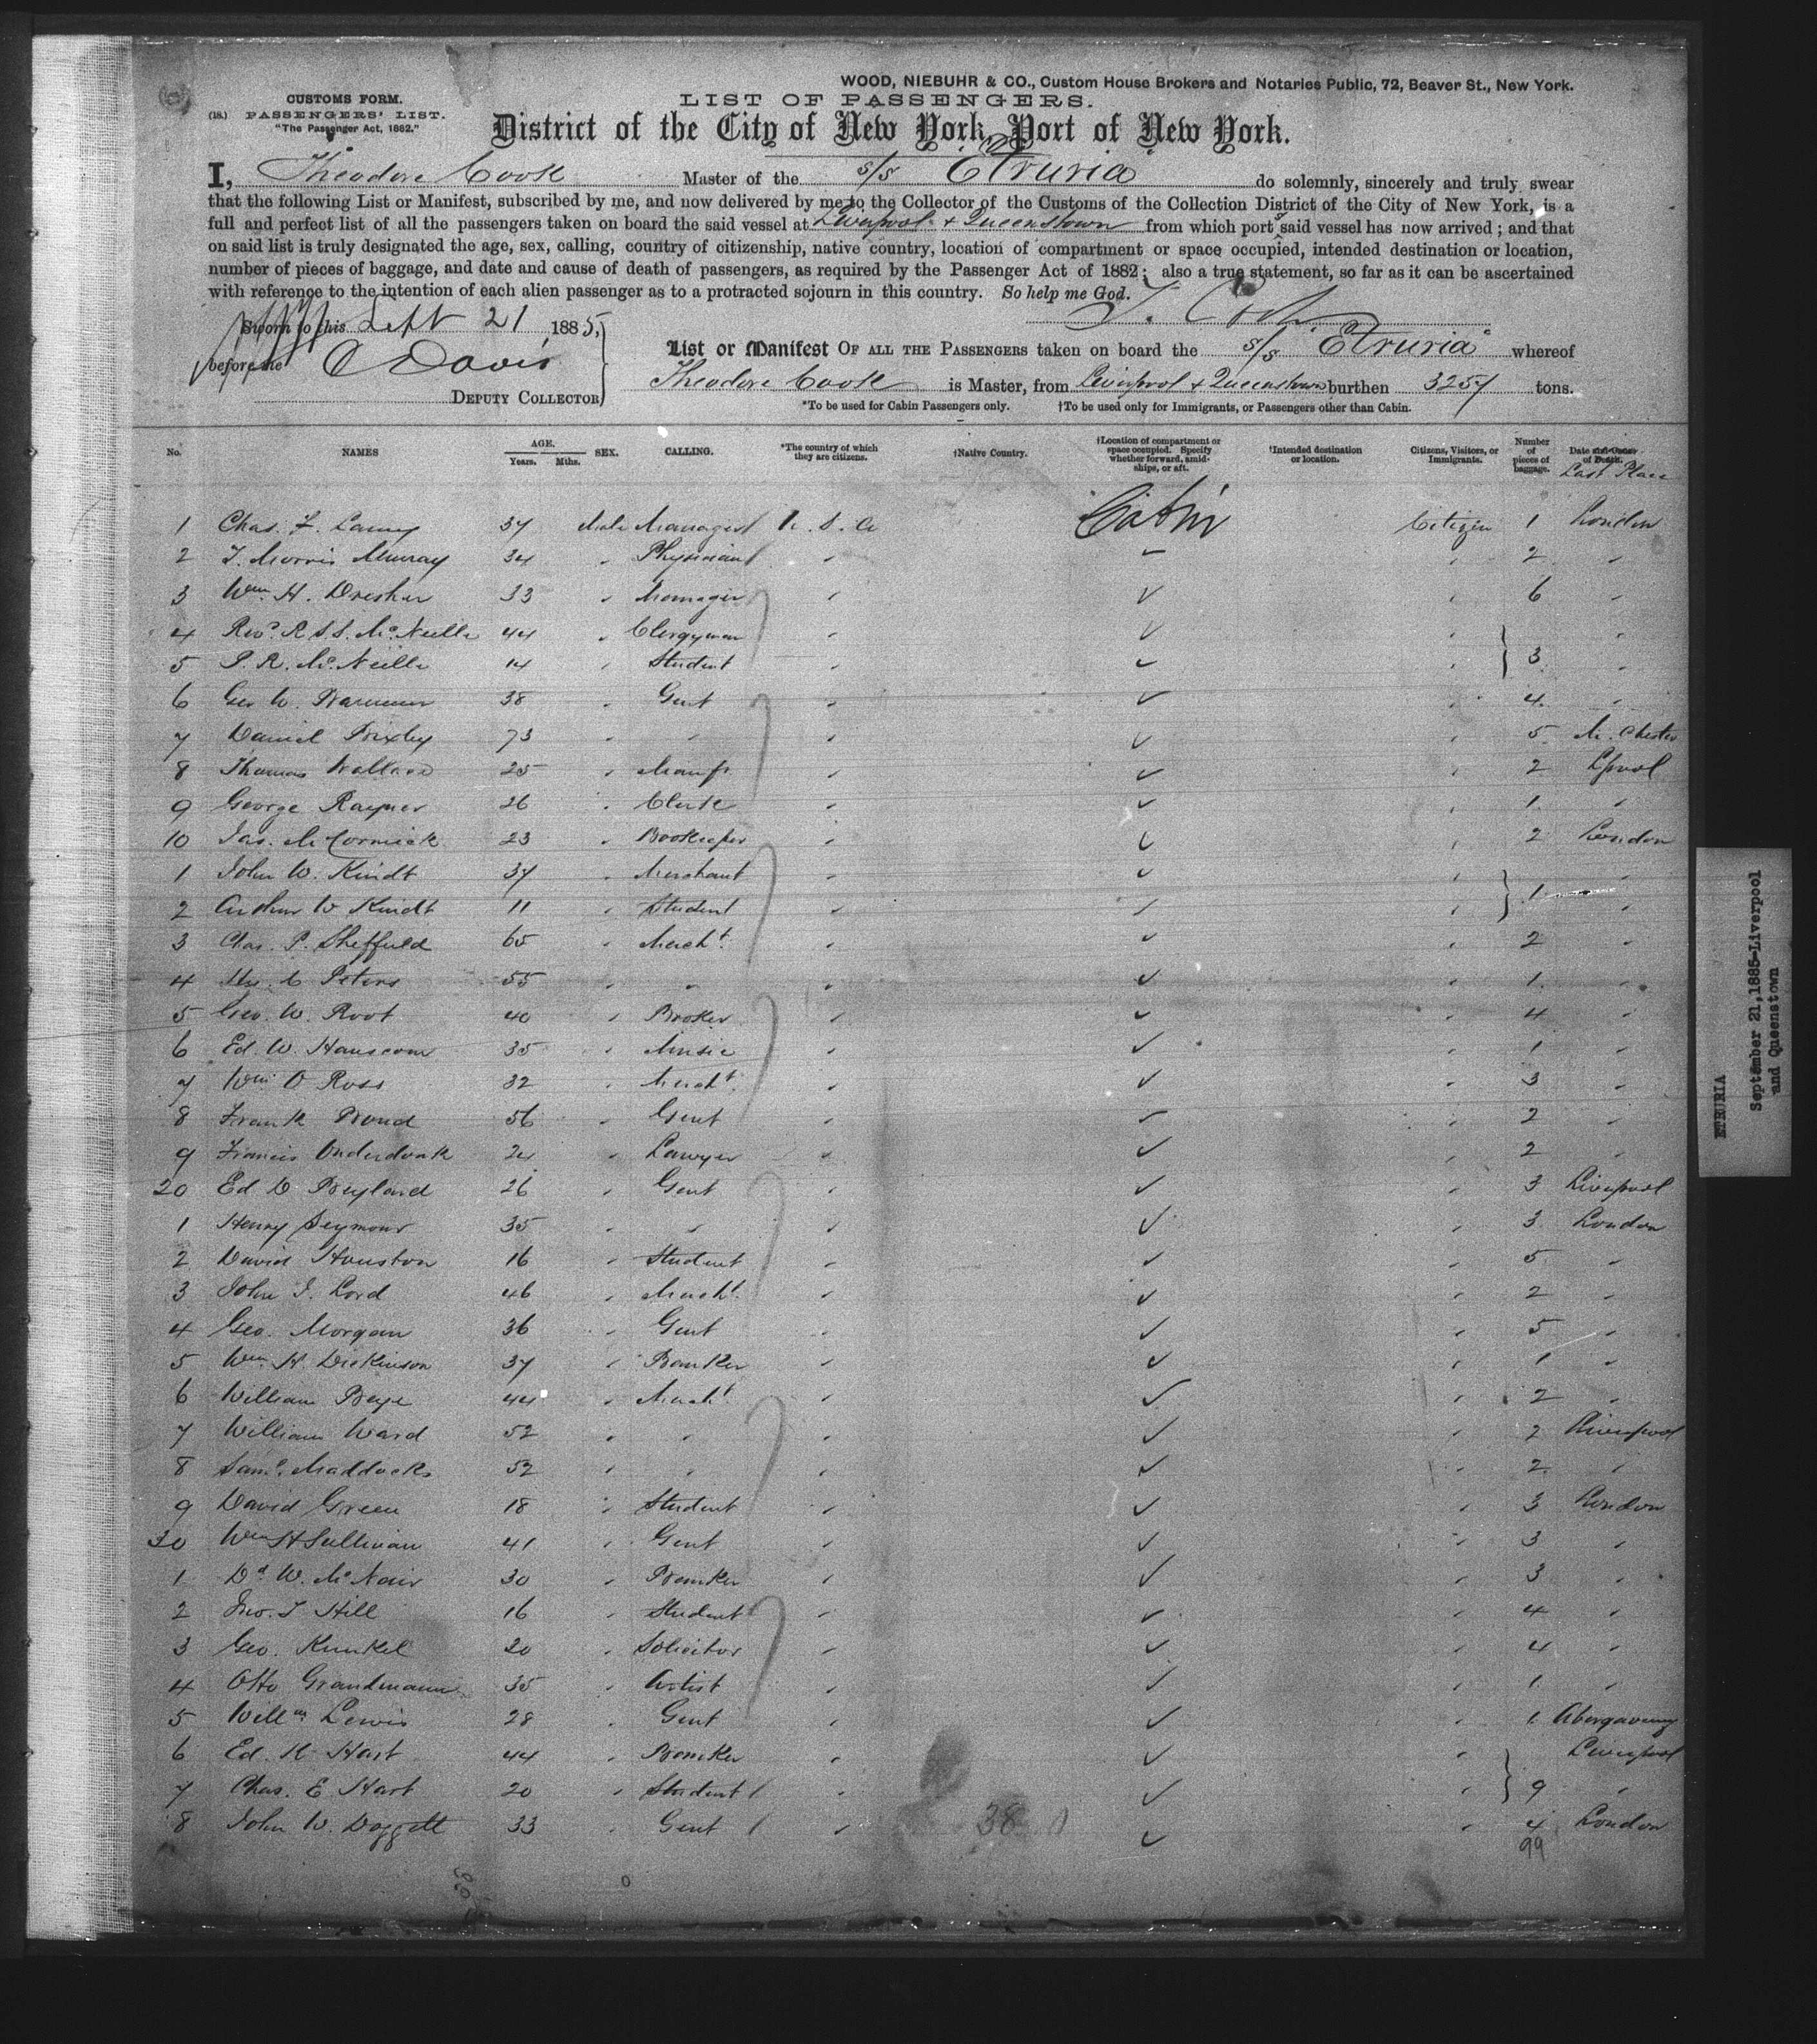 WOOD, NIEBUHR & CO., Custom House Brokers and Notaries Public, 72, Beaver St., New York.
CUSTOMS FORM.
LIST OF PASSENGERS.
(18.) PASSENGERS' LIST.
"The Passenger Act, 1882."
District of the City of New York, Port of New York.
I, Theodore Cook Master of the s/s "Etruria" do solemnly, sincerely and truly swear
that the following List or Manifest, subscribed by me, and now delivered by me to the Collector of the Customs of the Collection District of the City of New York, is a
full and perfect list of all the passengers taken on board the said vessel at Liverpool & Queenstown from which port s said vessel has now arrived; and that
on said list is truly designated the age, sex, calling, country of citizenship, native country, location of compartment or space occupied, intended destination or location,
number of pieces of baggage, and date and cause of death of passengers, as required by the Passenger Act of 1882; also a true statement, so far as it can be ascertained
with reference to the intention of each alien passenger as to a protracted sojourn in this country. So help me God.
T. Cook
Sworn to this Sept 21 1885,
before me C Davis
DEPUTY COLLECTOR
List or Manifest OF ALL THE PASSENGERS taken on board the s/s "Etruria" whereof
Theodore Cook is Master, from Liverpool & Queenstown burthen 3257 tons.
*To be used for Cabin Passengers only. †To be used only for Immigrants, or Passengers other than Cabin.
No. NAMES AGE. Years. Mths. SEX. CALLING. *The country of which they are citizens. †Native Country. †Location of compartment or space occupied. Specify whether forward, amidships, or aft. †Intended destination or location. Citizens, Visitors, or Immigrants. Number of pieces of baggage. Date and Cause of Death. Last Place
1 Chas. F. 37 Male Manager U.S.A Cabin Citizen 1 London
2 T. Morris Murray 34 " Physician " ✓ " 2 "
3 Wm. H. Dresher 33 " Manager " ✓ " 6 "
4 Revd. R.S.S. McNeille 44 " Clergyman " ✓ " "
5 P.R. McNeille 14 " Student " ✓ " 3 "
6 Geo W. 38 " Gent " ✓ " 4 "
7 Daniel Bixby 73 " " " ✓ " 5 M.chester
8 Thomas Wallace 25 " Manfr " ✓ " 2 Lpool
9 George Rayner 26 " Clerk " ✓ " 1 "
10 Jas. McCormick 23 " Bookeeper " ✓ " 2 London
1 John W. Kindt 37 " Merchant " ✓ " "
2 Arthur W Kindt 11 " Student " ✓ " 1 "
3 Chas. P. Sheffield 65 " Mercht. " ✓ " 2 "
4 Hy. C Peters 55 " " " ✓ " 1 "
5 Geo. W. Root 40 " Broker " ✓ " 4 "
6 Ed. W. Hanscom 35 " Music " ✓ " 1 "
7 Wm O Ross 32 " Mercht. " ✓ " 3 "
8 Frank Bond 56 " Gent " ✓ " 2 "
9 Francis Onderdonk 24 " Lawyer " ✓ " 2 "
20 Ed D 26 " Gent " ✓ " 3 Liverpool
1 Henry Seymour 35 " " " ✓ " 3 London
2 David Houston 16 " Student " ✓ " 5 "
3 John J. Lord 46 " Mercht. " ✓ " 2 "
4 Geo. Morgan 36 " Gent " ✓ " 5 "
5 Wm. H. Dickinson 37 " Banker " ✓ " 1 "
6 William 44 " Mercht " ✓ " 2 "
7 William Ward 52 " " " ✓ " 2 Liverpool
8 Saml. Maddocks 52 " " " ✓ " 2 "
9 David Green 18 " Student " ✓ " 3 London
30 Wm H Sullivan 41 " Gent " ✓ " 3 "
1 Dd. W. McNair 30 " Banker " ✓ " 3 "
2 Jno. T Hill 16 " Student " ✓ " 4 "
3 Geo. Kunkel 20 " Solicitor " ✓ " 4 "
4 Otto Grundmann 35 " Artist " ✓ " 1 "
5 Willm. Lewis 28 " Gent " ✓ " 1 Abergavenny
6 Ed. K Hart 44 " Banker " ✓ " Liverpool
7 Chas. E Hart 20 " Student " ✓ " 9 "
8 John W. Doggett 33 " Gent " 38 ✓ " 4 London
99
ETRURIA
September 21, 1885-Liverpool
and Queenstown